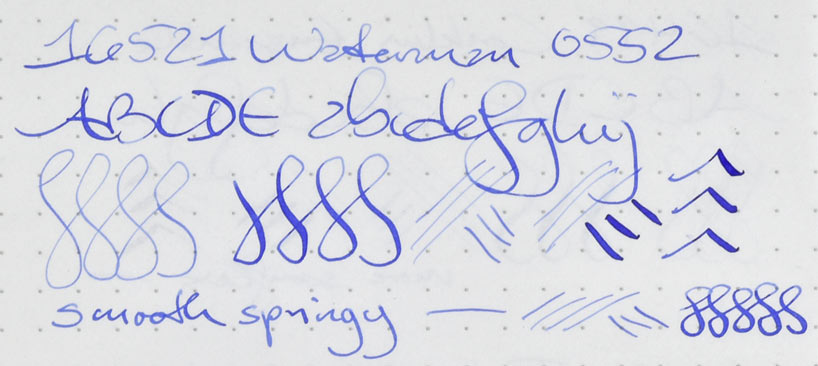 16521 Waterman 0552
ABCDE abcdefghij
smooth springy